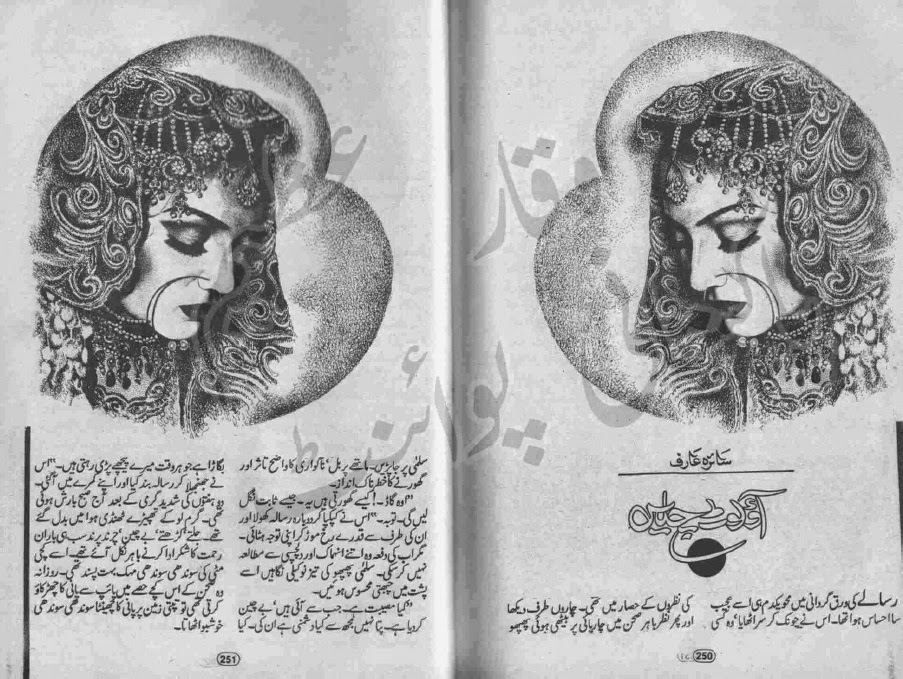 سائرہ عارف
رسالے کی ورق گردانی میں محو یکدم ہی اسے عجیب
سا احساس ہوا تھا۔ اس نے چونک کر سر اٹھایا، وہ کسی
کی نظروں کے حصار میں تھی۔ چاروں طرف دیکھا
اور پھر نظر باہر صحن میں چارپائی پر بیٹھی ہوئی پھپھو
250
سلمٰی پر جا پڑیں۔ ماتھے پر بل، ناگواری کا واضح تاثر اور
گھورنے کا خطرناک انداز۔
"او گاڈ۔! کیسے گھورتی ہیں یہ۔ جیسے ثابت نگل
لیں گی۔ توبہ۔" اس نے کپکپا کر دوبارہ رسالہ کھولا اور
ان کی طرف سے قدرے رخ موڑ کر اپنی توجہ ہٹائی۔
مگر اب کی دفعہ وہ اتنے انہماک اور دلچسپی سے مطالعہ
نہیں کر سکی۔ سلمٰی پھپھو کی تیز نوکیلی نگاہیں اسے
پشت میں چبھتی محسوس ہوئیں۔
"کیا مصیبت ہے۔ جب سے آئی ہیں، بے چین
کر دیا ہے۔ پتا نہیں مجھ سے کیا دشمنی ہے ان کی۔ کیا
بگاڑا ہے جو ہر وقت میرے پیچھے پڑی رہتی ہیں۔" اس
نے جھنجلا کر رسالہ بند کیا اور اپنے کمرے میں آ گئی۔
دو ہفتوں کی شدید گرمی کے بعد آج صبح بارش ہوئی
تھی۔ گرم لو کے تھپیڑے ٹھنڈی ہوا میں بدل گئے
تھے۔ جلتے کڑھتے، بے چین، چرند پرند سب ہی باران
رحمت کا شکر ادا کرنے باہر نکل آئے تھے۔ اسے کچی
مٹی کی سوندھی سوندھی مہک بہت پسند تھی۔ روزانہ
وہ صحن کے اس کچے حصے میں پائپ سے پانی کا چھڑکاؤ
کرتی تھی تو تپتی زمین پر پانی کا چھینٹا سوندھی سوندھی
خوشبو اٹھاتا۔
251
وقار عظیم
پوائنٹ